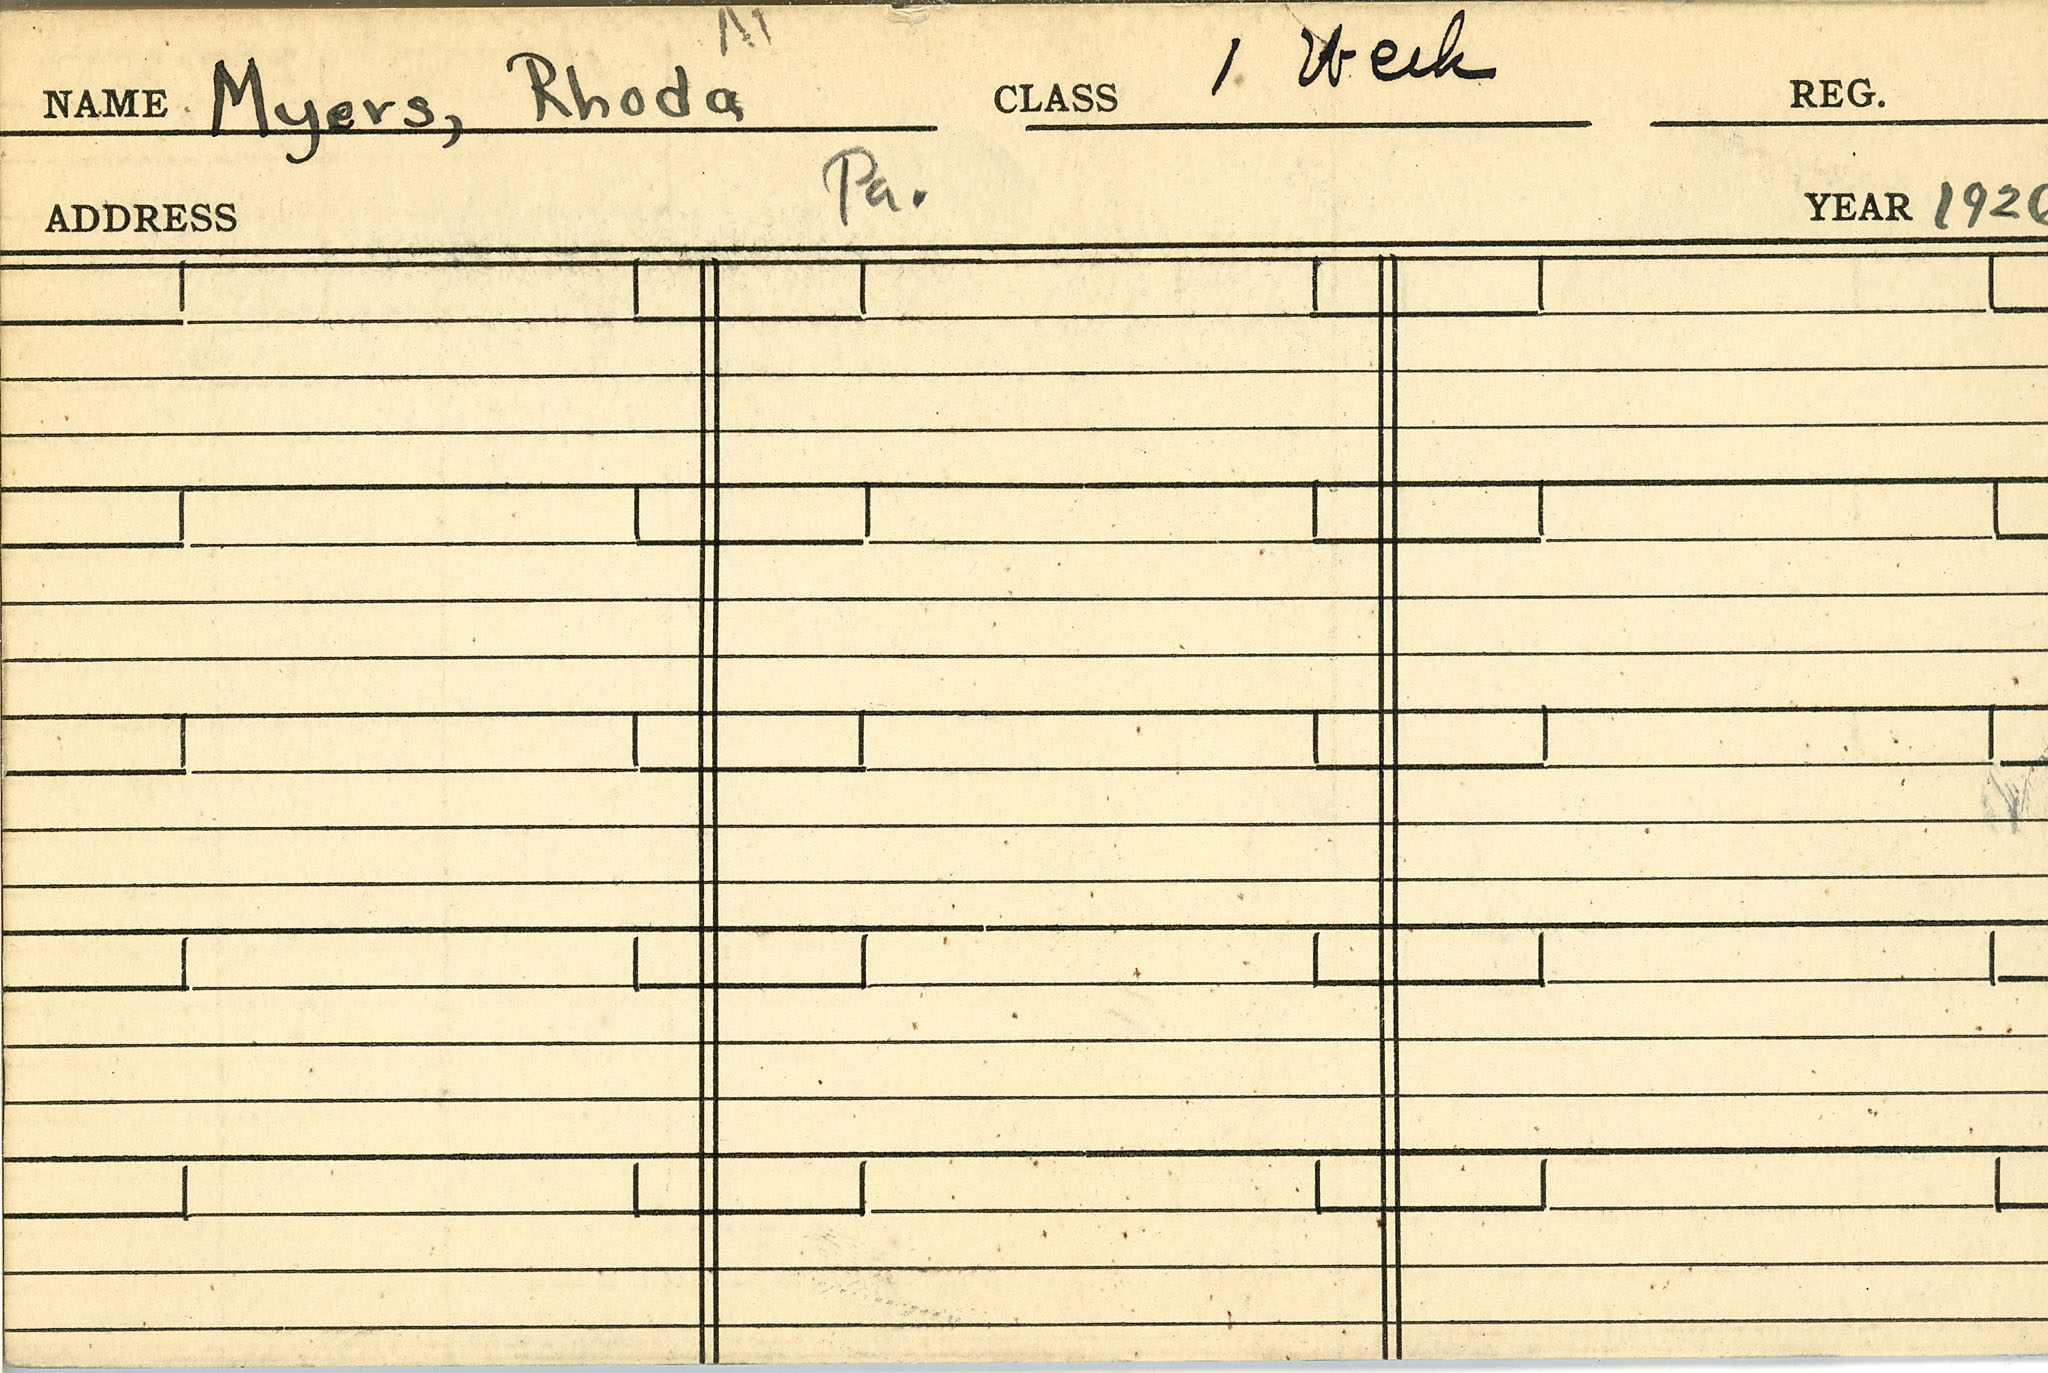 NAME Myers, Rhoda CLASS 1 Week REG.
Pa.
ADDRESS YEAR 1926